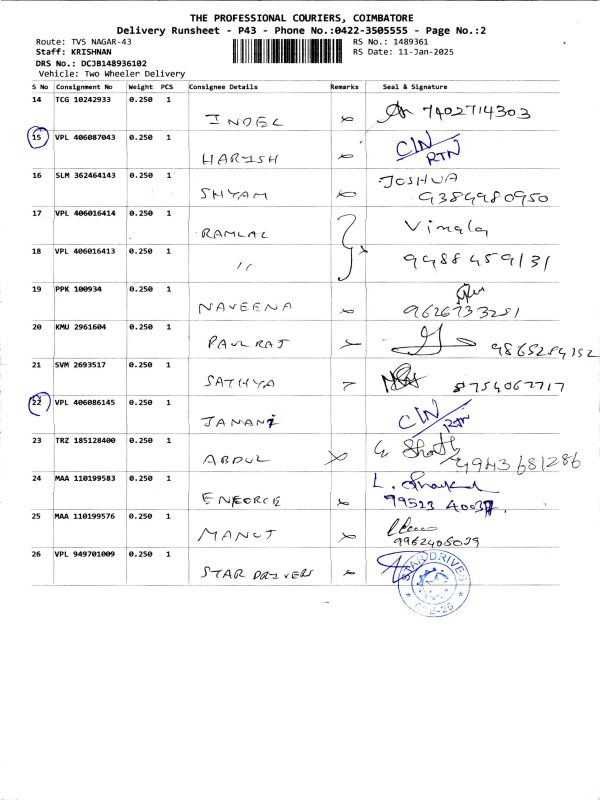 THE PROFESSIONAL COURIERS, COIMBATORE
Delivery Runsheet - P43 - Phone No.:0422-3505555 - Page No.:2
Route: TVS NAGAR-43 RS No.: 1489361
Staff: KRISHNAN RS Date: 11-Jan-2025
DRS No.: DCJB148936102
Vehicle: Two Wheeler Delivery
S No Consignment No Weight PCS Consignee Details Remarks Seal & Signature
14 TCG 10242933 0.250 1
INOEL 7402714303
15 VPL 406087043 0.250 1
HARISH CIN/RTN
16 SLM 362464143 0.250 1 JOSHUA
SHYAM 9384980950
17 VPL 406016414 0.250 1 Vimala
RAMLAL
18 VPL 406016413 0.250 1
" 9488459131
19 PPK 100934 0.250 1
NAVEENA 9626733281
20 KMU 2961604 0.250 1
PAULRAJ 9865284152
21 SVM 2693517 0.250 1
SATHYA 8754067717
22 VPL 406086145 0.250 1
JANANI CIN/RTN
23 TRZ 185128400 0.250 1
ABDUL 9943681286
24 MAA 110199583 0.250 1 L.
ENFORCE 99523 40037.
25 MAA 110199576 0.250 1
MANOJ 9962406039
26 VPL 949701009 0.250 1
STAR DRIVERS STAR DRIVES